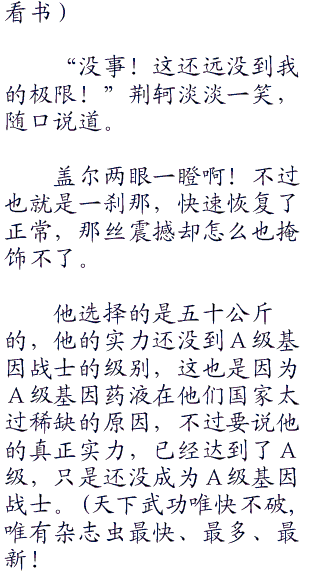 看书）
“没事！这还远没到我
的极限！”荆轲淡淡一笑，
随口说道。
盖尔两眼一瞪啊！不过
也就是一刹那，快速恢复了
正常，那丝震撼却怎么也掩
饰不了。
他选择的是五十公斤
的，他的实力还没到A级基
因战士的级别，这也是因为
A级基因药液在他们国家太
过稀缺的原因，不过要说他
的真正实力，已经达到了A
级，只是还没成为A级基因
战士。(天下武功唯快不破，
唯有杂志虫最快、最多、最
新！